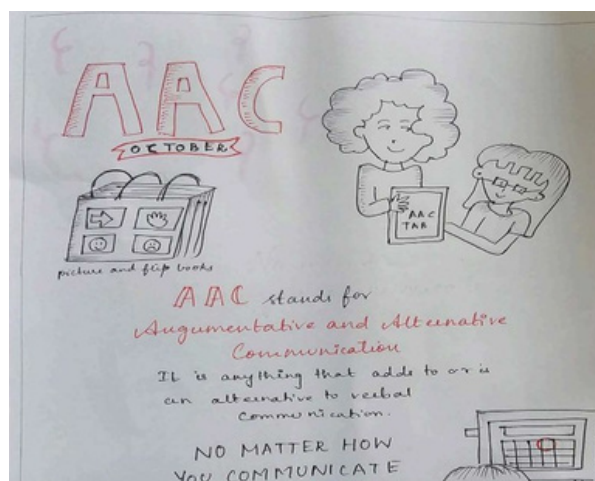 AAC
OCTOBER
AAC
TAB
picture and flip books
AAC stands for
Augumentative and Alternative
Communication
It is anything that adds to or is
an alternative to verbal
communication.
NO MATTER HOW
YOU COMMUNICATE